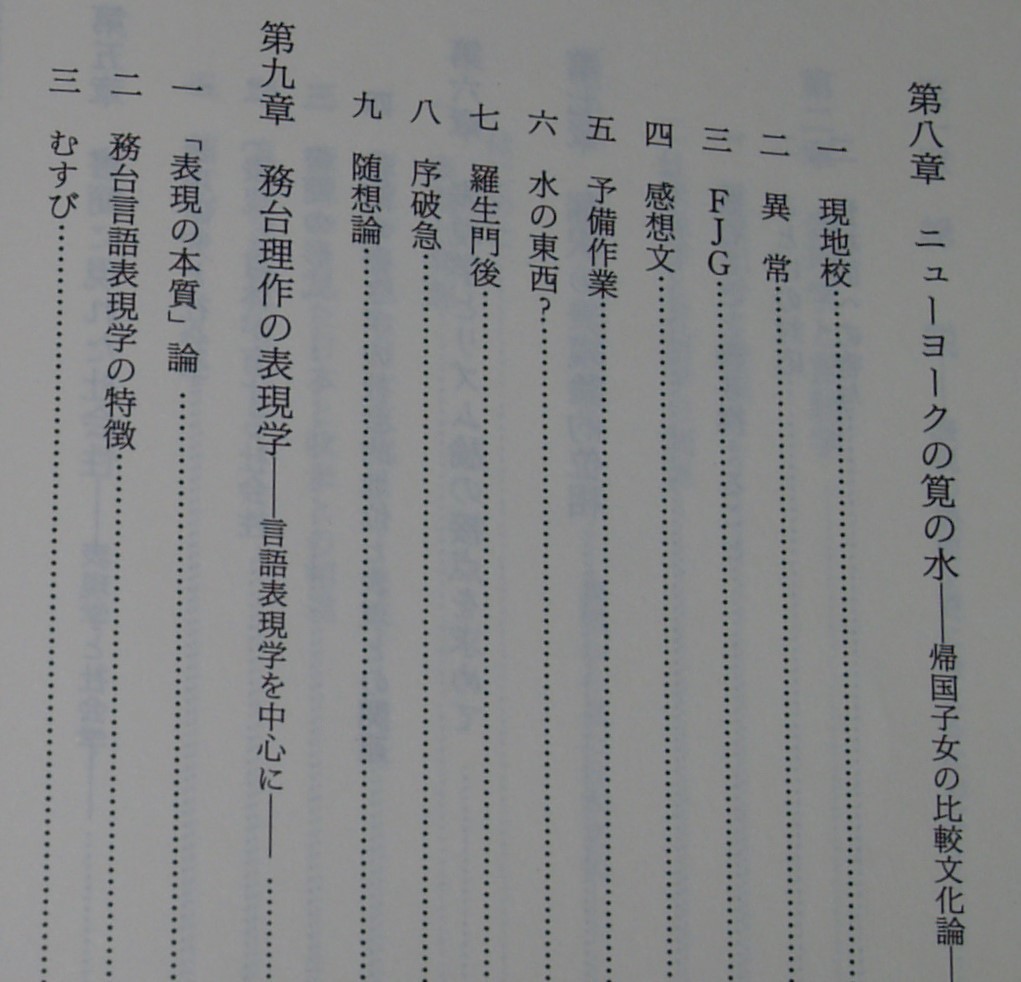 第八章　ニューヨークの筧の水――帰国子女の比較文化論―
一　現地校……………
二　異　常……………
三　FJG……………
四　感想文……………
五　予備作業……………
六　水の東西?……………
七　羅生門後……………
八　序破急……………
九　随想論……………
第九章　務台理作の表現学――言語表現学を中心に――　……
一　「表現の本質」論　……………
二　務台言語表現学の特徴……………
三　むすび……………